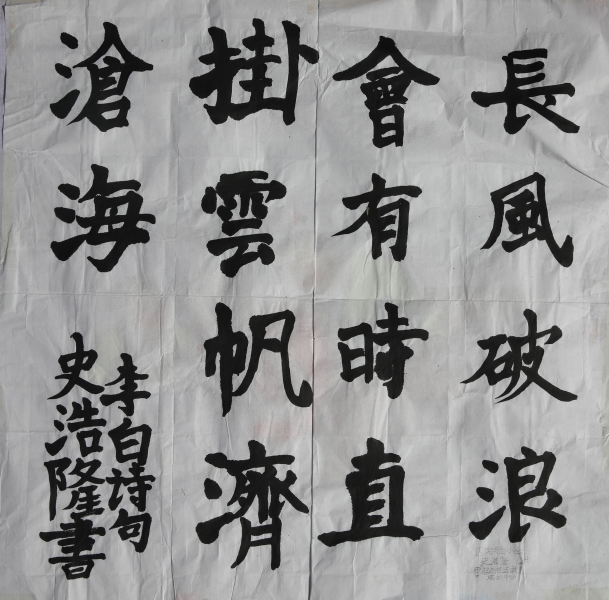 長風破浪
會有時直
掛雲帆濟
滄海
李白诗句
史浩隆書